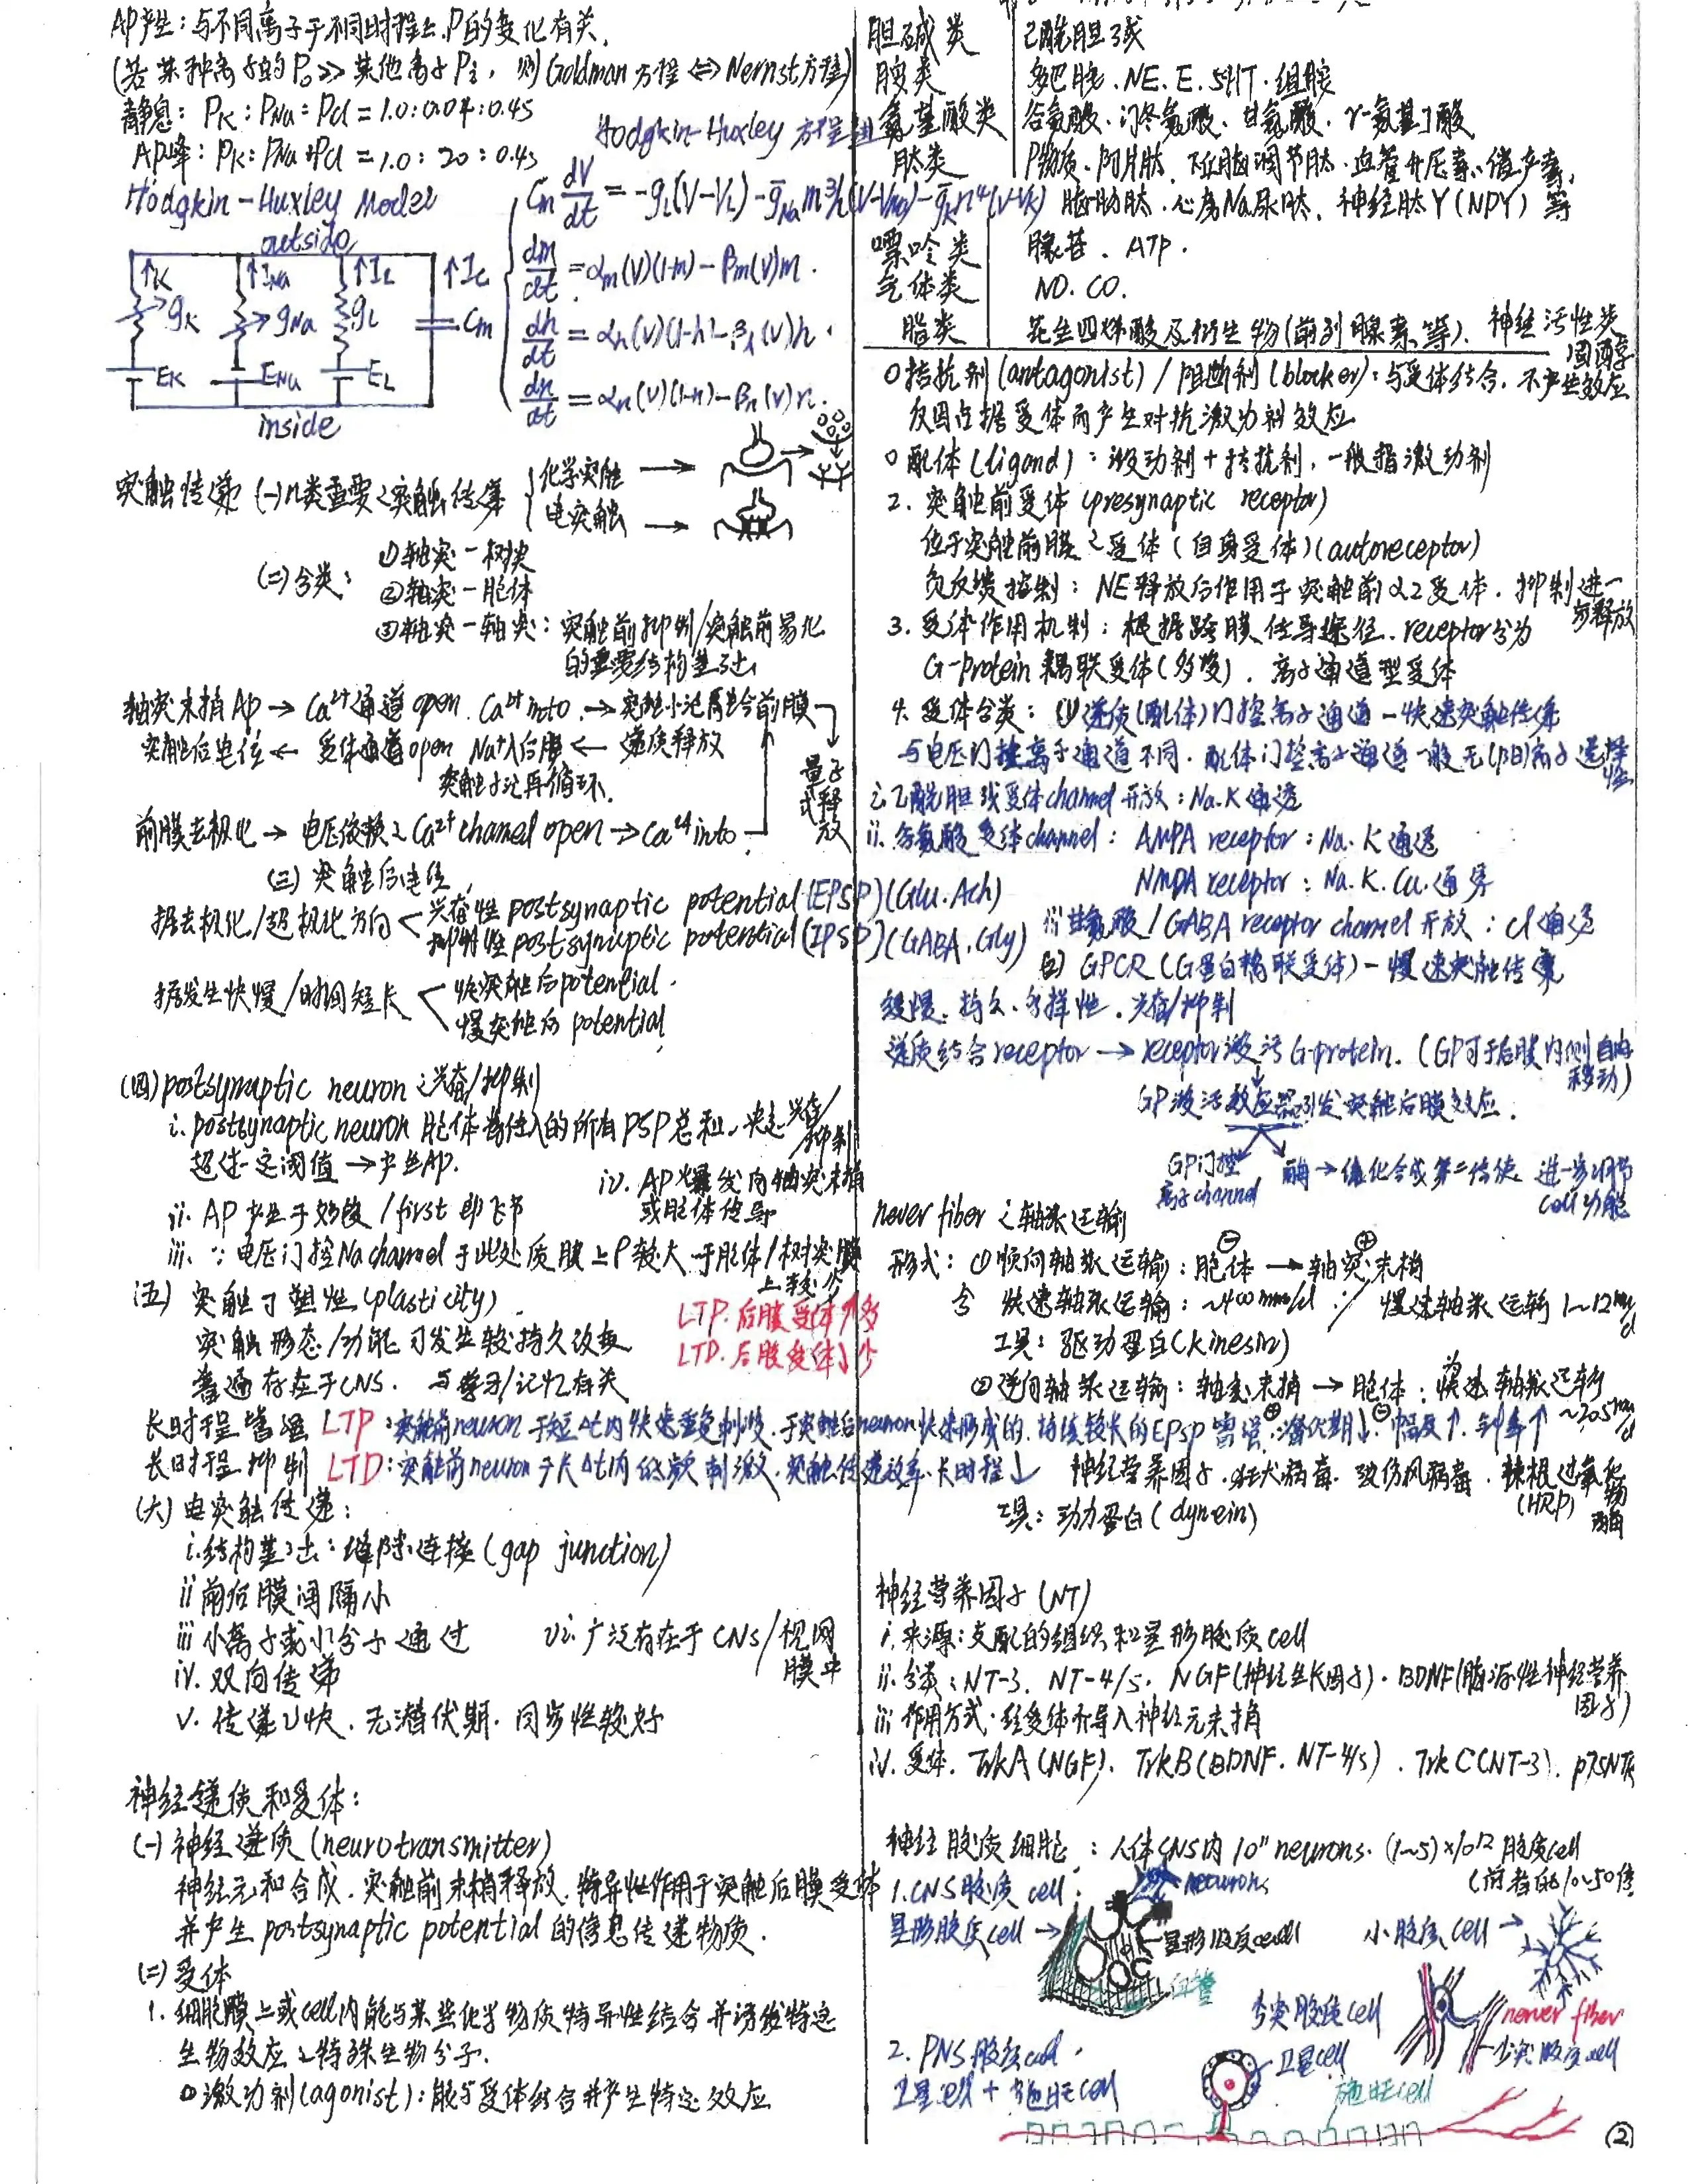 AP产生:与不同离子于不同时程上P的变化有关.
(若某种离子的P₀≫其他离子Pᵢ, 则Goldman方程⇔Nernst方程)
静息: PK:PNa:PCl=1.0:0.04:0.45
AP峰: PK:PNa:PCl=1.0:20:0.45
Hodgkin-Huxley 方程
Hodgkin-Huxley Model
Cm dV/dt = -gL(V-VL)-ḡNa m³h(V-VNa)-ḡK n⁴(V-VK)
dm/dt = αm(V)(1-m)-βm(V)m.
dh/dt = αh(V)(1-h)-βh(V)h.
dn/dt = αn(V)(1-n)-βn(V)n.
outside
IK INa IL IC
gK gNa gL Cm
EK ENa EL
inside
突触传递 (一)2类重要之突触传递
化学突触 →
电突触 →
(二)分类:
①轴突-树突
②轴突-胞体
③轴突-轴突:突触前抑制/突触前易化
的重要结构基础
轴突末梢AP→Ca²⁺通道open. Ca²⁺ into.→突触小泡融合前膜
突触后电位← 受体通道open Na⁺内流← 递质释放
突触小泡再循环.
量子式释放
前膜去极化→电压依赖之Ca²⁺ channel open→Ca²⁺ into
(三)突触后电位
据去极化/超极化方向
兴奋性postsynaptic potential(EPSP)(Glu.Ach)
抑制性postsynaptic potential(IPSP)(GABA.Gly)
据发生快慢/时间短长
快突触后potential.
慢突触后potential
(四)postsynaptic neuron之兴奋/抑制
i. postsynaptic neuron胞体将传入的所有PSP总和,决定兴奋/抑制
超过一定阈值→产生AP.
ii. AP产生于始段/first郎飞节
iii. ∵电压门控Na channel于此处质膜上ρ较大 于胞体/树突膜上较少
iv. AP爆发向轴突末梢
或胞体传导
(五) 突触可塑性(plasticity).
突触形态/功能可发生较持久改变
普遍存在于CNS. 与学习/记忆有关
LTP.后膜受体↑多
LTD.后膜受体↓少
长时程增强 LTP:突触前neuron于短Δt内快速重复刺激.于突触后neuron快速形成的.持续较长的EPSP增强.潜伏期↓.幅度↑.斜率↑
长时程抑制 LTD:突触前neuron于长Δt内低频刺激.突触传递效率长时程↓
(六)电突触传递:
i.结构基础:缝隙连接(gap junction)
ii 前后膜间隔小
iii 小离子或小分子通过
iv. 双向传递
v. 传递v快.无潜伏期.同步性较好
vi.广泛存在于CNS/视网膜中
神经递质和受体:
(一)神经递质(neurotransmitter)
神经元和合成.突触前末梢释放.特异性作用于突触后膜受体
并产生postsynaptic potential的信息传递物质.
(二)受体
1. 细胞膜上或cell内能与某些化学物质特异性结合并诱发特定
生物效应之特殊生物分子.
○激动剂(agonist):能与受体结合并产生特定效应
胆碱类 乙酰胆碱
胺类 多巴胺.NE.E.5HT.组胺
氨基酸类 谷氨酸.门冬氨酸.甘氨酸.γ-氨基丁酸
肽类 P物质.阿片肽.下丘脑调节肽.血管升压素.催产素.
脑肠肽.心房Na尿肽.神经肽Y(NPY)等
嘌呤类 腺苷.ATP.
气体类 NO.CO.
脂类 花生四烯酸及衍生物(前列腺素等).神经活性类固醇
○拮抗剂(antagonist)/阻断剂(blocker):与受体结合.不产生效应
反因占据受体而产生对抗激动剂效应
○配体(ligand):激动剂+拮抗剂,一般指激动剂
2. 突触前受体(presynaptic receptor)
位于突触前膜之受体(自身受体)(autoreceptor)
负反馈控制:NE释放后作用于突触前α2受体.抑制进一步释放
3. 受体作用机制:根据跨膜信号途径.receptor分为
G-protein耦联受体(多数).离子通道型受体
4. 受体分类:(1)递质(配体)门控离子通道-快速突触传递
与电压门控离子通道不同.配体门控离子通道一般无(阳)离子选择性
i.乙酰胆碱受体channel开放:Na.K通透
ii.谷氨酸受体channel: AMPA receptor:Na.K通透
NMDA receptor:Na.K.Ca.通透
iii甘氨酸/GABA receptor channel开放:Cl通透
(2) GPCR(G蛋白耦联受体)-慢速突触传递
缓慢.持久.多样性.兴奋/抑制
递质结合receptor→receptor激活G-protein.(GP可于后膜内侧自由移动)
GP激活效应器引发突触后膜效应.
GP门控离子channel
酶→催化合成第二信使 进一步调节cell功能
never fiber之轴浆运输
形式:①顺向轴浆运输:胞体⊖→轴突末梢⊕
含 快速轴浆运输:~400mm/d 慢速轴浆运输1~12mm/d
工具:驱动蛋白(kinesin)
②逆向轴浆运输:轴突末梢⊕→胞体⊖:为快速轴浆运输~205mm/d
神经营养因子.狂犬病毒.破伤风病毒.辣根过氧化物酶(HRP)
工具:动力蛋白(dynein)
神经营养因子(NT)
i.来源:支配的组织和星形胶质cell
ii.分类:NT-3. NT-4/5. NGF(神经生长因子).BDNF(脑源性神经营养因子)
iii 作用方式.经受体介导入神经元末梢
iv. 受体. TrkA(NGF). TrkB(BDNF. NT-4/5). TrkC(NT-3). p75NTR
神经胶质细胞:人体CNS内10¹¹ neurons. (1~5)×10¹²胶质cell
(前者的10~50倍
1.CNS胶质cell:
neurons
星形胶质cell→
星形胶质cell
血管
小胶质cell→
少突胶质cell
never fiber
少突胶质cell
2. PNS胶质cell.
卫星cell+施旺cell
卫星cell
施旺cell
②